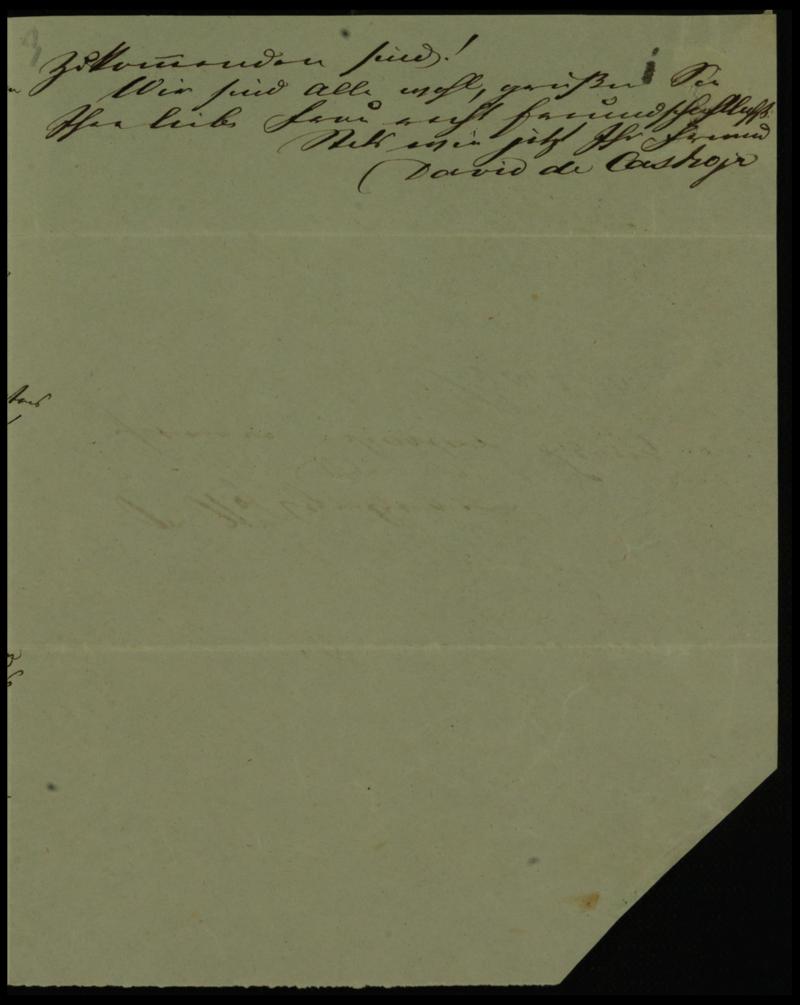 3
Zukommenden sind!
Wir sind alle wohl, grüßen Sie
Ihre liebe Frau recht freundschaftlichst
Stets wie jetzt Ihr Freund
David de Castro jr